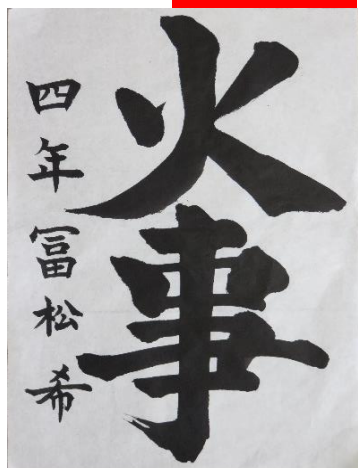 火事
四年 冨松 希